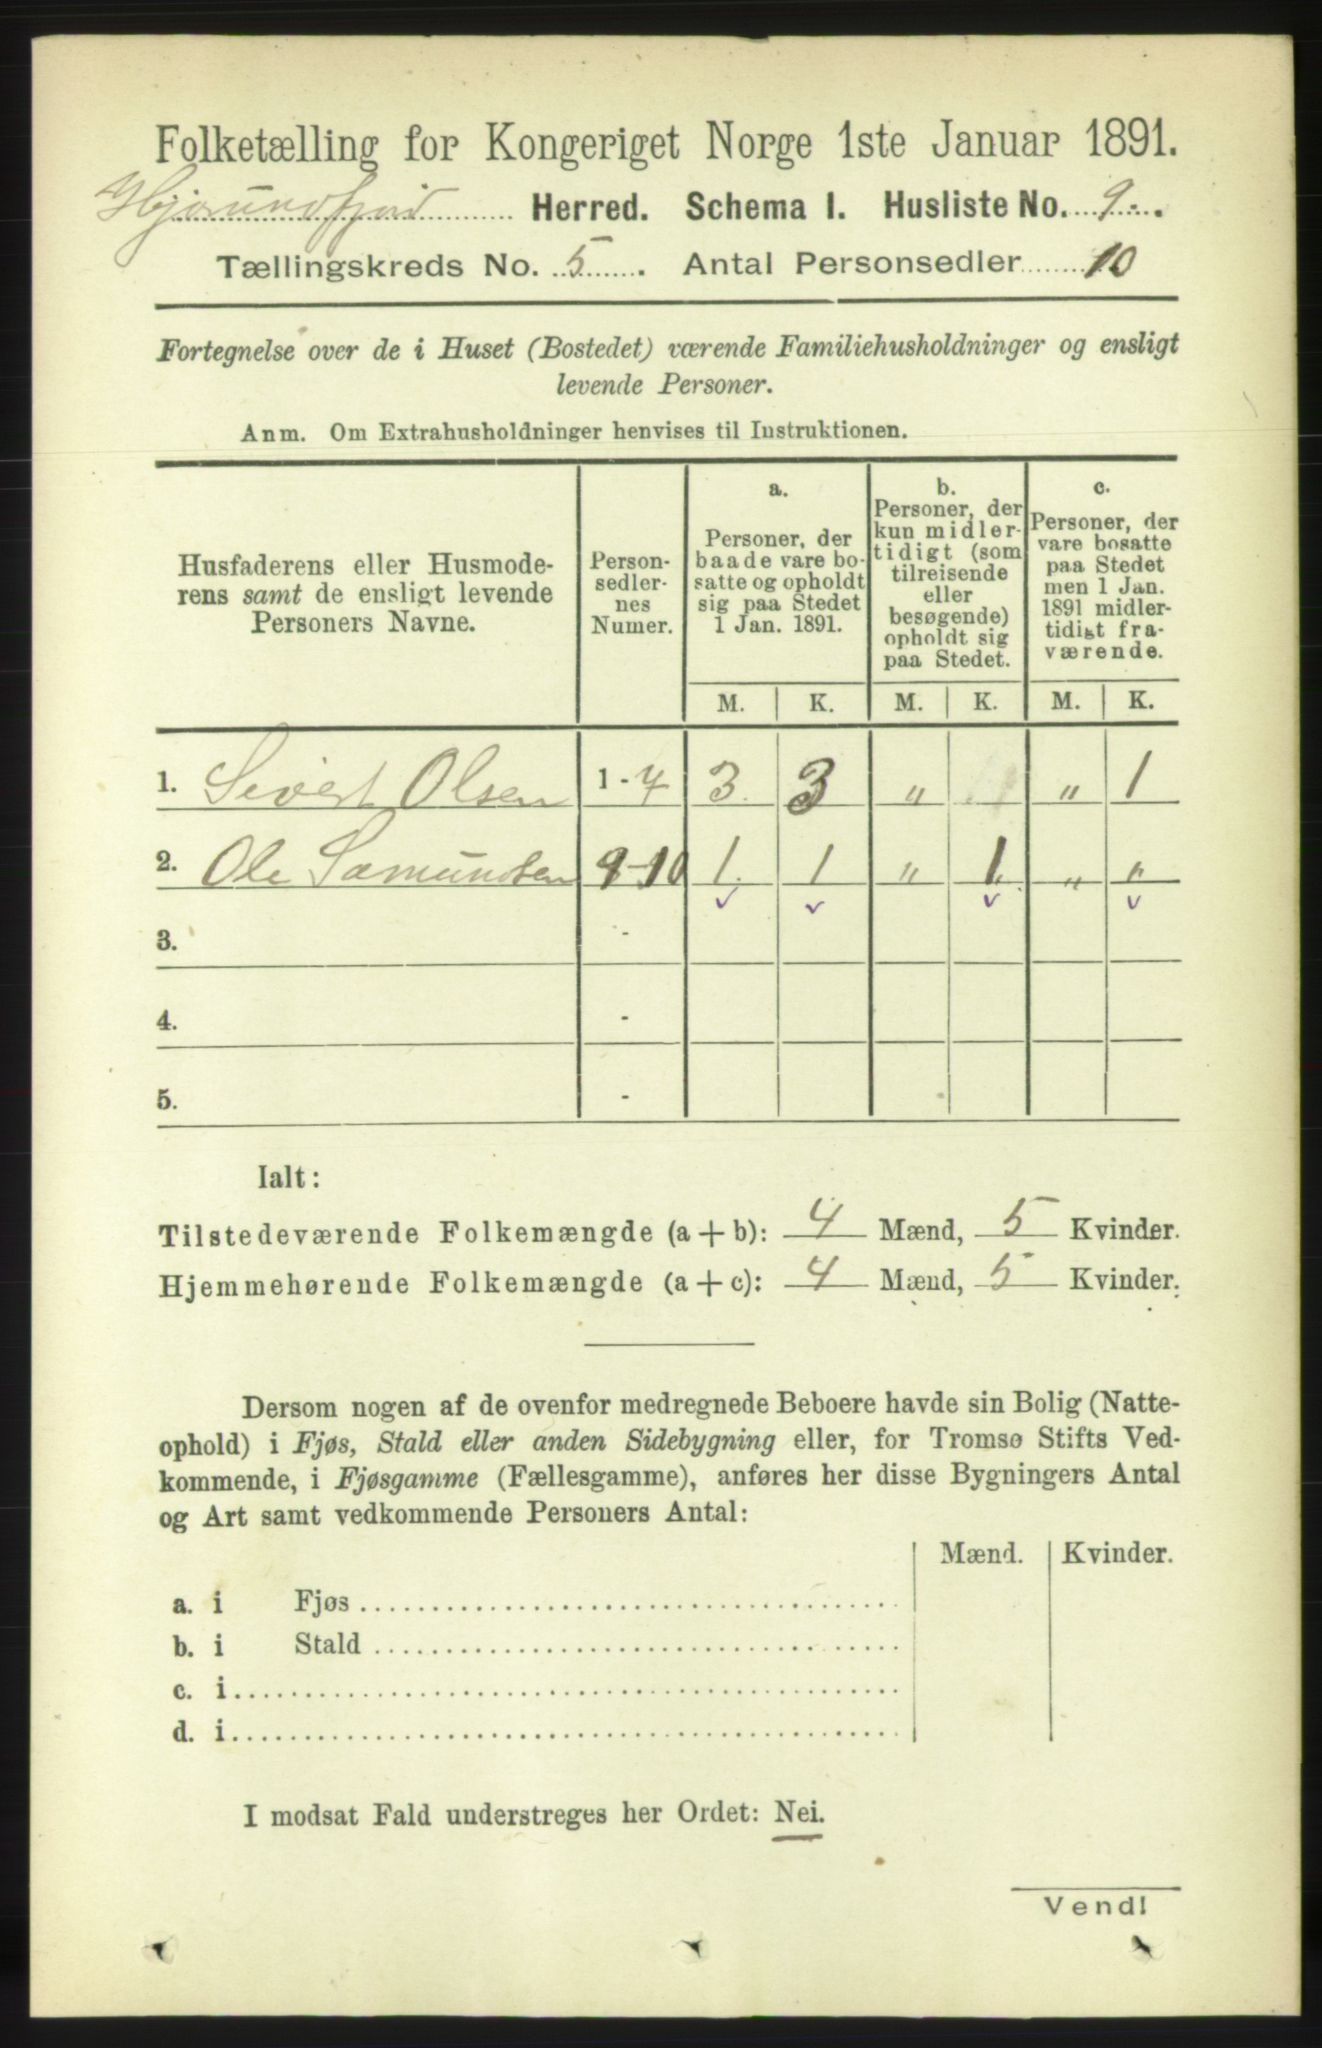 Folketælling for Kongeriget Norge 1ste Januar 1891.
Hjørundfjord Herred. Schema I. Husliste No. 9.
Tællingskreds No. 5. Antal Personsedler 10
Fortegnelse over de i Huset (Bostedet) værende Familiehusholdninger og ensligt
levende Personer.
Anm. Om Extrahusholdninger henvises til Instruktionen.
Husfaderens eller Husmode-
rens samt de ensligt levende
Personers Navne.
Person-
sedler-
nes
Numer.
a.
Personer, der
baade vare bo-
satte og opholdt
sig paa Stedet
1 Jan. 1891.
b.
Personer, der
kun midler-
tidigt (som
tilreisende
eller
besøgende)
opholdt sig
paa Stedet.
c.
Personer, der
vare bosatte
paa Stedet
men 1 Jan.
1891 midler-
tidigt fra-
værende.
M. K. M. K. M. K.
1. Sivert Olsen 1 - 7 3 3 " " 1
2. Ole Samundsen 9-10 1 1 " 1 " "
3. -
4. -
5. -
Ialt:
Tilstedeværende Folkemængde (a + b): 4 Mænd, 5 Kvinder.
Hjemmehørende Folkemængde (a + c): 4 Mænd, 5 Kvinder.
Dersom nogen af de ovenfor medregnede Beboere havde sin Bolig (Natte-
ophold) i Fjøs, Stald eller anden Sidebygning eller, for Tromsø Stifts Ved-
kommende, i Fjøsgamme (Fællesgamme), anføres her disse Bygningers Antal
og Art samt vedkommende Personers Antal:
Mænd. Kvinder.
a. i Fjøs
b. i Stald
c. i
d. i
I modsat Fald understreges her Ordet: Nei.
Vend!